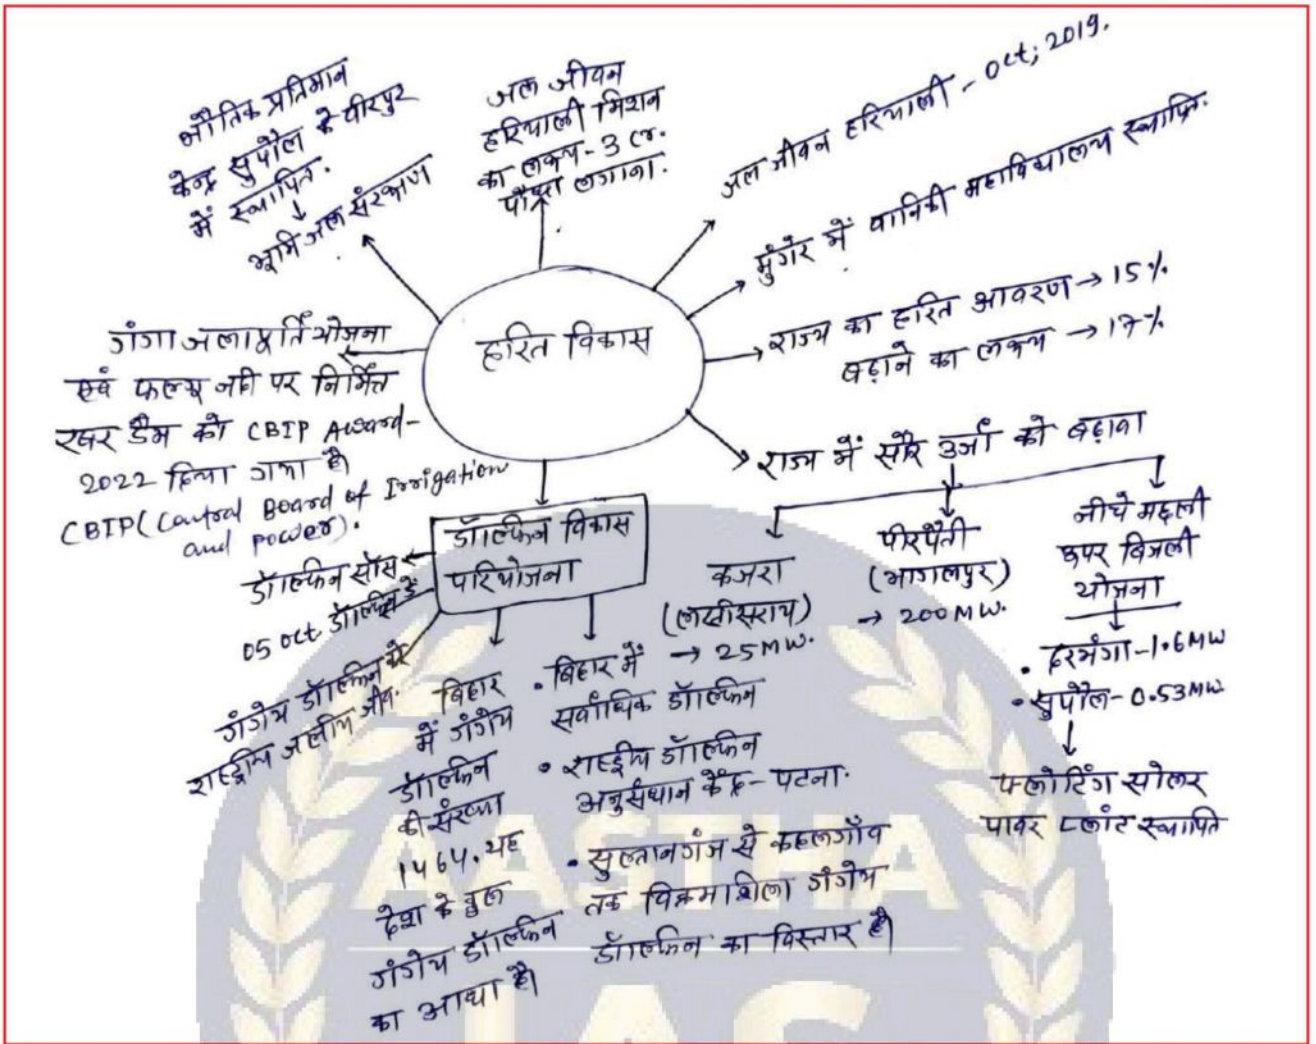 भौतिक प्रतिमान
केन्द्र सुपौल के वीरपुर
में स्थापित.
भूमि जल संरक्षण
जल जीवन
हरियाली मिशन
का लक्ष्य - 3 cr.
पौधा लगाना.
जल जीवन हरियाली - Oct, 2019.
मुंगेर में वानिकी महाविद्यालय स्थापित.
राज्य का हरित आवरण → 15%
बढ़ाने का लक्ष्य → 17%
राज्य में सौर उर्जा को बढ़ावा
हरित विकास
गंगा जलापूर्ति योजना
एवं फल्गु नदी पर निर्मित
रबर डैम को CBIP Award-
2022 दिया गया है।
CBIP (Central Board of Irrigation
and power).
डॉल्फिन विकास
परियोजना
डॉल्फिन सोंस
05 Oct डॉल्फिन डे
गंगेय डॉल्फिन को
राष्ट्रीय जलीय जीव.
बिहार
में गंगेय
डॉल्फिन
की संख्या
1464. यह
देश के कुल
गंगेय डॉल्फिन
का आधा है।
• बिहार में
सर्वाधिक डॉल्फिन
• राष्ट्रीय डॉल्फिन
अनुसंधान केंद्र - पटना.
• सुल्तानगंज से कहलगाँव
तक विक्रमशिला गंगेय
डॉल्फिन का विस्तार है।
कजरा
(लखीसराय)
→ 25MW.
पीरपैंती
(भागलपुर)
→ 200MW.
नीचे मछली
उपर बिजली
योजना
• दरभंगा - 1.6MW
• सुपौल - 0.53MW
फ्लोटिंग सोलर
पावर प्लांट स्थापित
AASTHA
IAS